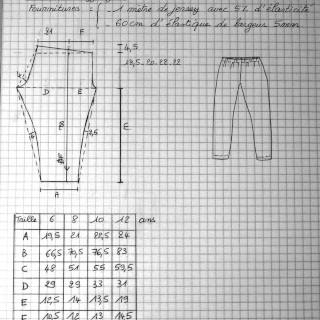 Fournitures : - 1 mètre de jersey avec 5% d'élasticité
- 60 cm d'élastique de largeur 5mm
21 F
4,5
19,5. 20. 22. 22
D E
B
E
2,5
A
Taille 6 8 10 12 ans
A 19,5 21 22,5 24
B 66,5 70,5 76,5 83
C 48 51 55 59,5
D 29 29 33 31
E 12,5 14 13,5 19
F 10,5 12 13 14,5